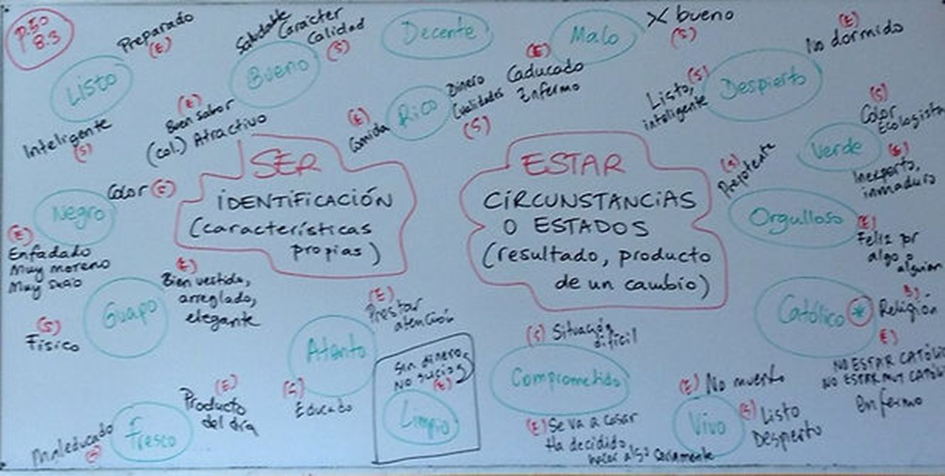 P.50
8.3
Listo
Preparado
(E)
Inteligente
(S)
Bueno
Saludable
Carácter
Calidad
(S)
(E)
Buen sabor
(col.) Atractivo
Decente
Rico
(E)
Comida
Dinero
Cualidades
(S)
Malo
X bueno
(S)
(E)
Caducado
Enfermo
Despierto
(E)
No dormido
(S)
Listo,
inteligente
Verde
(S)
Color
Ecologista
(S)
Inexperto,
inmaduro
SER
IDENTIFICACIÓN
(características
propias)
ESTAR
CIRCUNSTANCIAS
O ESTADOS
(resultado, producto
de un cambio)
Negro
Color (S)
(E)
Enfadado
Muy moreno
Muy sucio
Orgulloso
(S)
Prepotente
(E)
Feliz por
algo o
alguien
Guapo
(E)
Bien vestido,
arreglado,
elegante
(S)
Físico
Católico *
(S)
Religión
(E)
NO ESTAR CATÓLICO
NO ESTAR MUY CATÓLICO
Enfermo
Atento
(E)
Prestar
atención
(S)
Educado
Sin dinero
No sucio
(E)
Limpio
Comprometido
(S) Situación
difícil
(E) Se va a casar
Ha decidido
hacer algo
Vivo
(E) No muerto
(S) Listo
Despierto
Fresco
(E)
Producto
del día
Maleducado
(S)